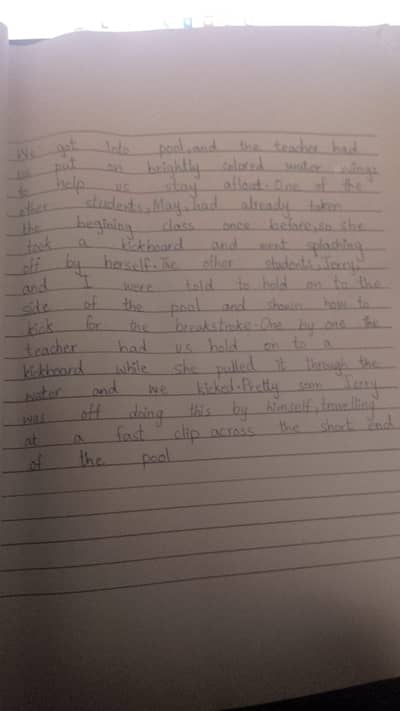 We got into pool,and the teacher had
us put on brightly colored water wings
to help us stay afloat.One of the
other students,May,had already taken
the begining class once before,so she
took a kickboard and went splaching
off by herself.The other students,Jerry,
and I were told to hold on to the
site of the pool and shown how to
kick for the breakstroke.One by one the
teacher had us hold on to a
kickboard while she pulled it through the
water and we kicked.Pretty soon Jerry
was off doing this by himself,travelling
at a fast clip across the short end
of the pool